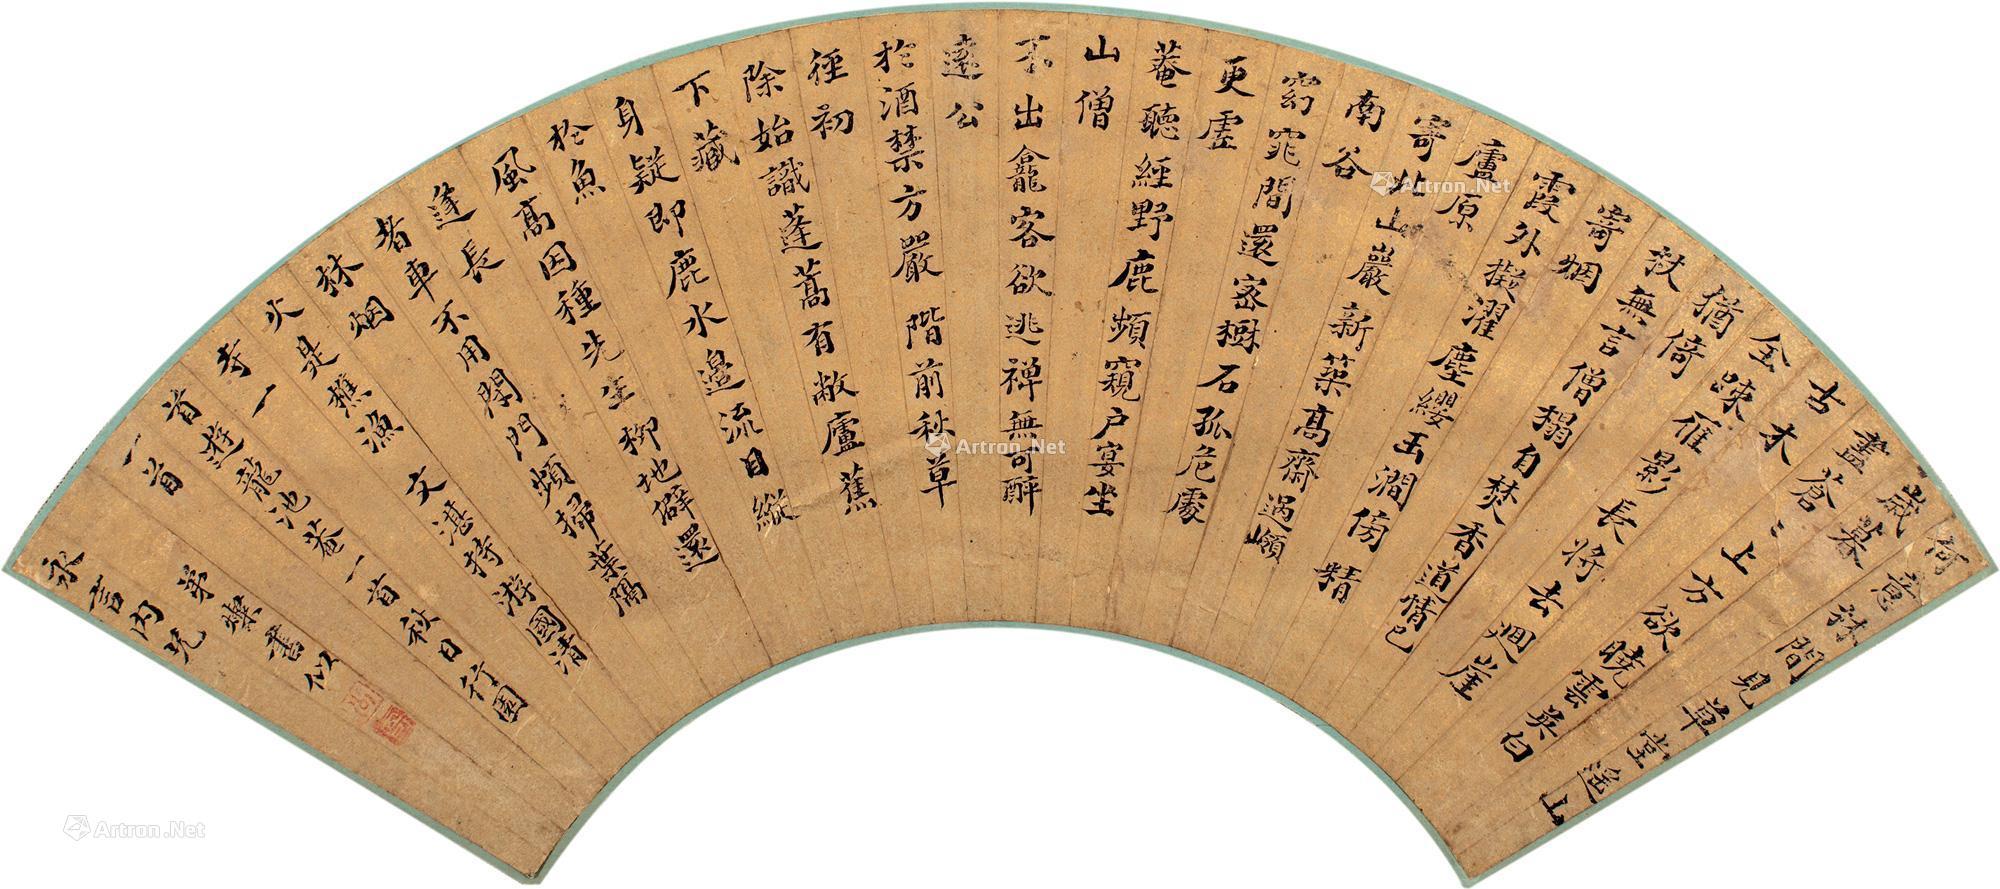 何意林間見草堂遙山
歲暮
盡蒼〻上方欲曉雲英白
古木
全味雁影長將去迴崖
猶倚
秋無言僧榻自焚香道情已
寄烟
霞外擬濯塵纓玉澗傍
廬原
寄北山巖新築高齋過嶺
南谷
窈窕間還密樹石孤危處
更虛
菴聽經野鹿頻窺户宴坐
山僧
不出龕客欲逃禅無可醉
遠公
於酒禁方嚴階前秋草
徑初
除始識蓬蒿有敝廬蕉
下藏
身疑即鹿水邊流目縱
於魚
風高因種先生柳地僻還
蓬長
者車不用閉門頻掃葉隔
林烟
火是樵漁 文湛持游國清
寺一
首游龍池菴一首秋日行園
一首
弟燦書似
永言内兄
Artron.Net
Artron.Net
Artron.Net